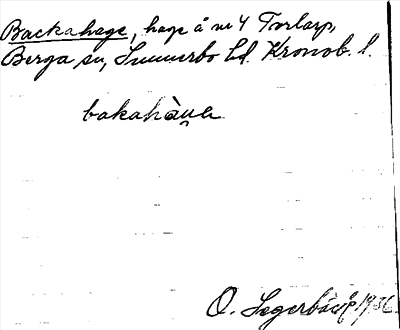 Backahage, hage å nr 4 Torlarp,
Berga sn, Sunnerbo hd. Kronob. l.
bakahàga
O. Segerbäck 1936.